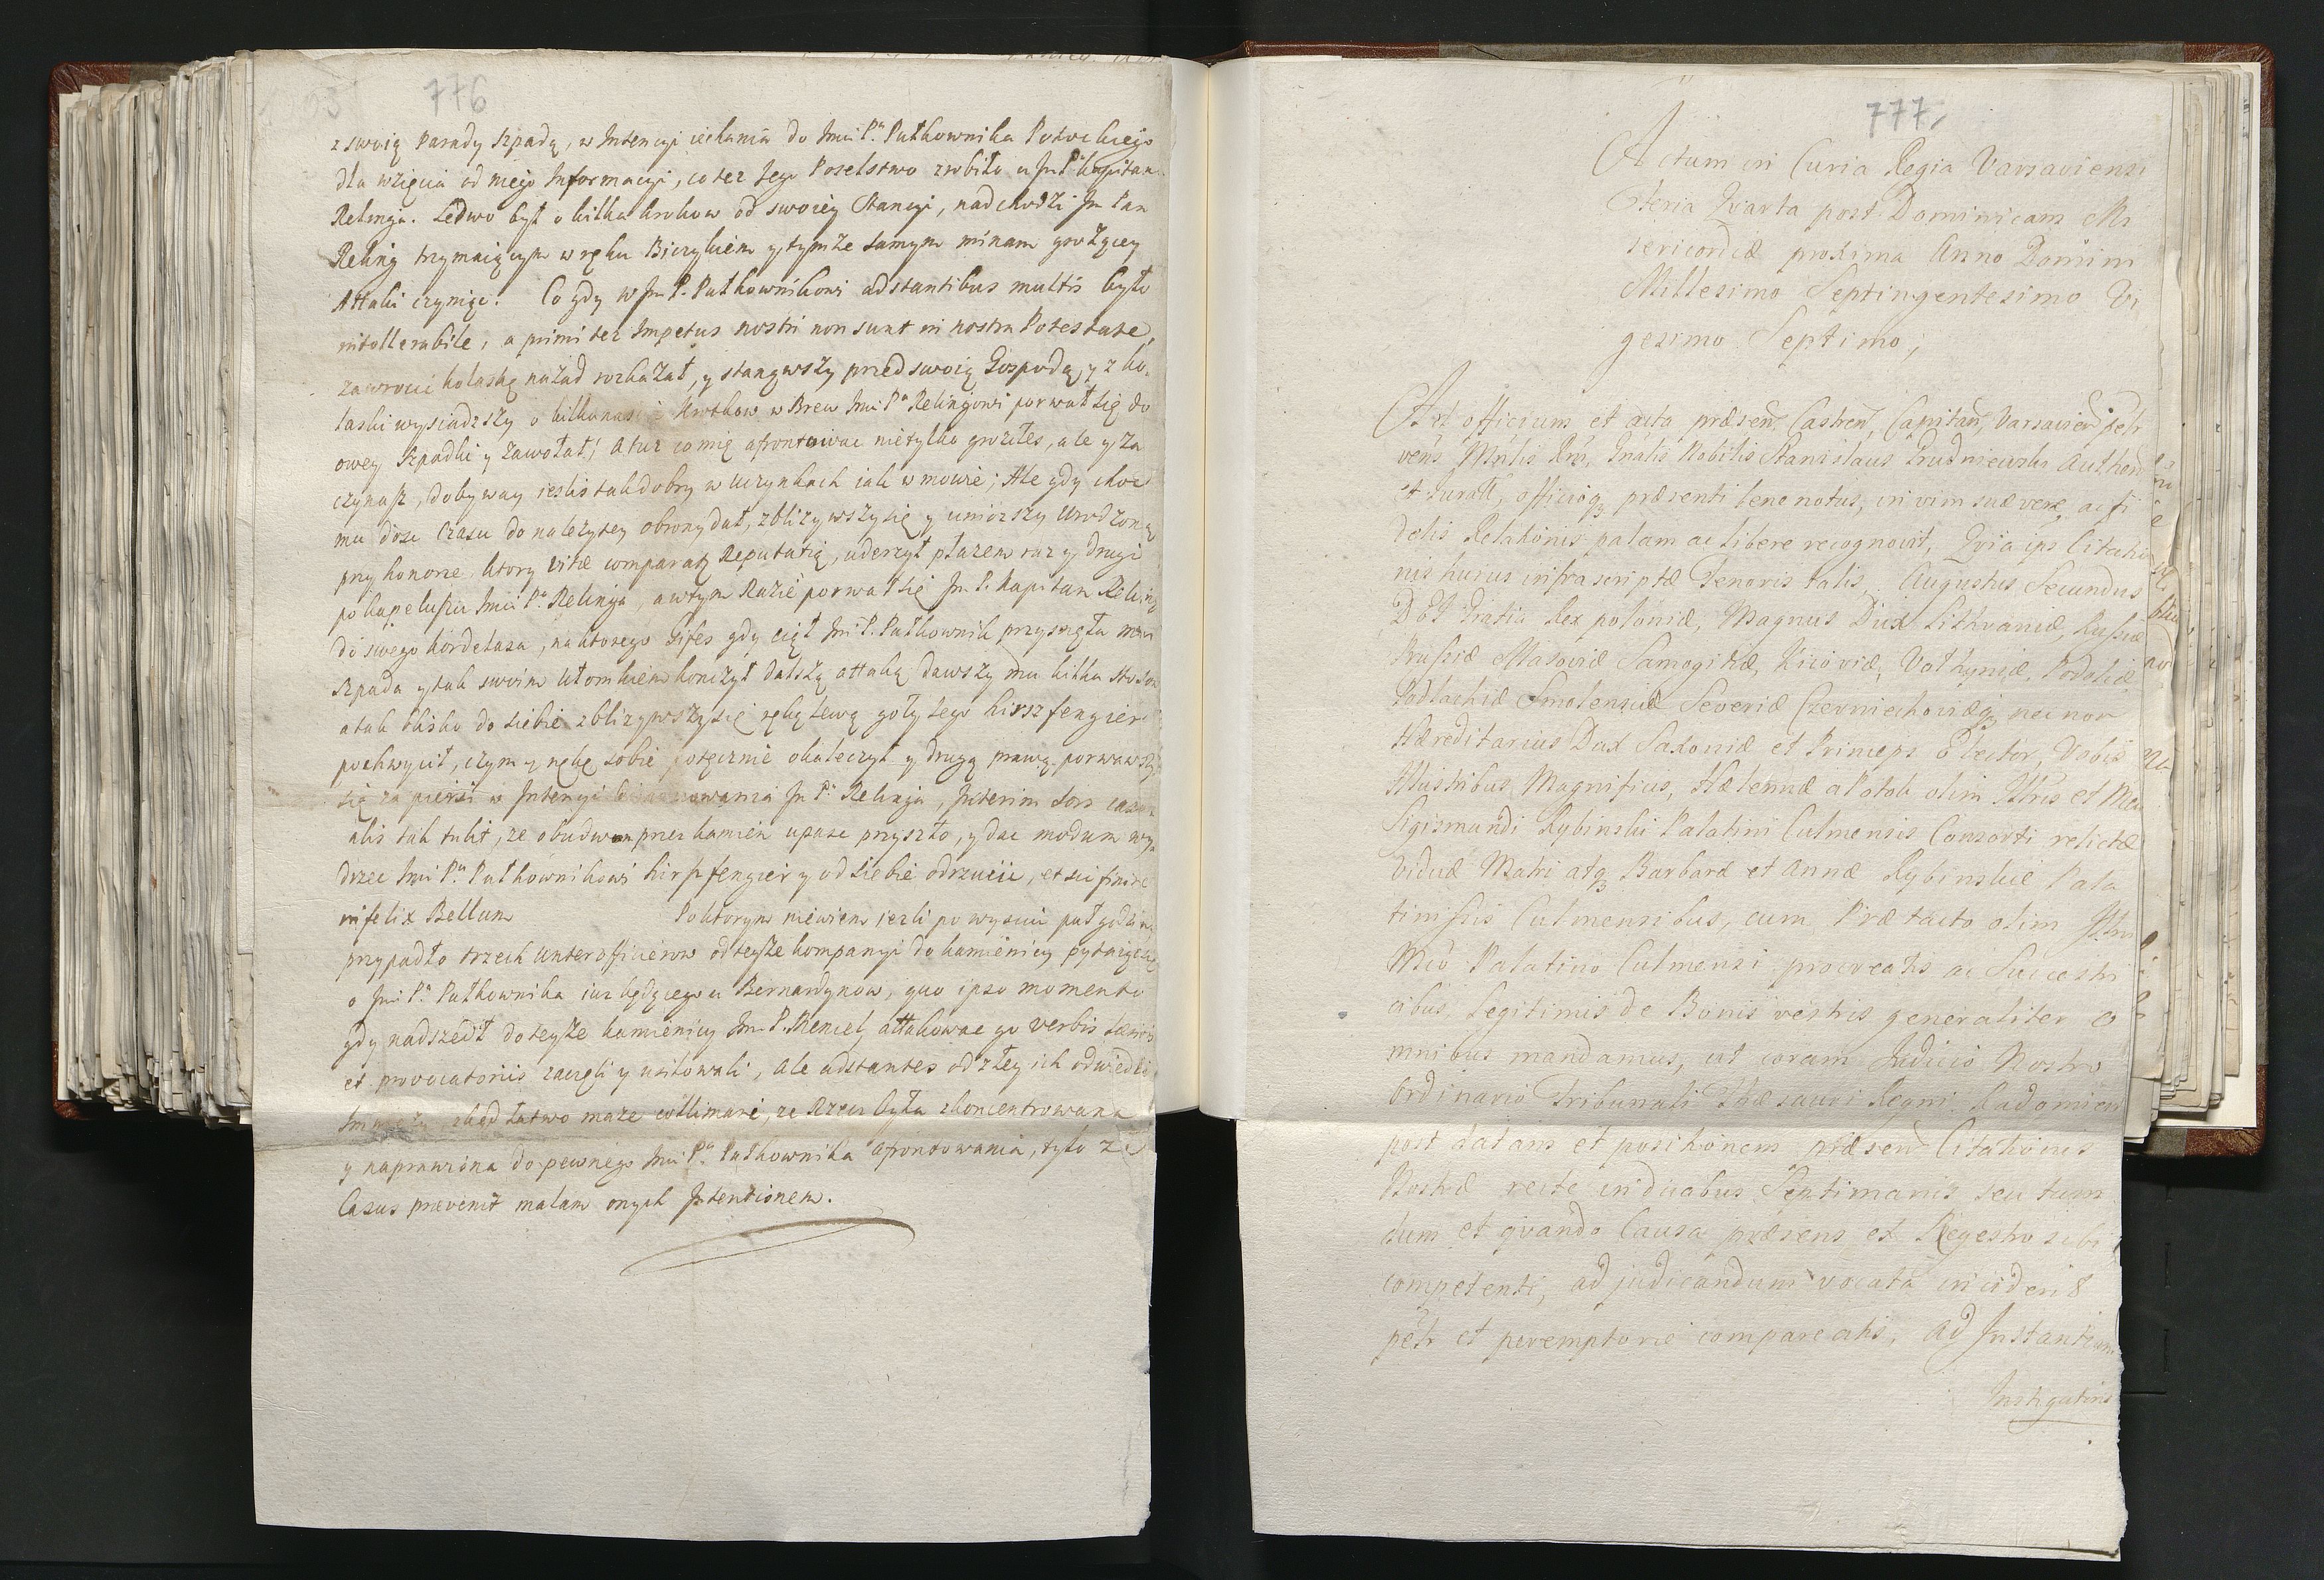 776
z swoią Parady Szpadą, w Intencyi iechania do Jmci Pª. Pułkownika Potockiego
dla wzięcia od niego Informacyi, co też tego Poselstwo zrobiło u Jmć P. Kapitana
Relinga. Ledwo był o kilka krokow od swoiey Stancyi, nadchodzi Jm Pan
Reling trzymaiącym w ręku Biczykiem y tymże samym minam grożącey
Attaki czynią. Co gdy w Jm P. Pułkownikowi adstantibus multis było
intollerabile, a primi ter Impetus nostri non sunt in nostra Potestate,
zawrocić kolaskę nazad rozkazał, y stanąwszy przed swoią Gospodą, y z ko-
laski wysiadszy o kilkanaście krokow w Brew Jmci Pª Relingowi porwał się do
owey Szpadki y zawołał! Atuz co mię afrontować nietylko groziłes, ale y za
czynasz, dobyway iesliś tak dobry w uczynkach iak w mowie; Ale gdy choć
mu dość Czasu do należytey obrony dał, zbliżywszy się y uniosszy Urodzoną
przy honorze ktory vitæ comparatz Reputatią, uderzył płazem raz y drugi
po kapeluszu Jmci Pª. Relinga, a w tym Razie porwał się Jm P. Kapitan Reling
do swego kordelasa, na ktorego Eifes gdy ciął Jmć P. Pułkownik przysięgła mu
Szpada y tak swoim ułomkiem konczył dalszą attakę dawszy mu kilka
a tak blisko do siebie zbliżywszy się ręką lewą goły tego hirszfengier
pochwycił, czym y rękę sobie potęcznie okaleczył y drugą prawą porwawszy
się za piersi w Intencyi Jm Pª Relinga, Interim sors
alis tak tulit, ze obudwom przez kamien upasc przyszło, y dac modum wy
drzec Jmci Pª. Pułkownikowi hirszfengier y od siebie odrzucic, et sic finire
infelix Bellum Po ktorym niewiem iezli po wysciu puł godziny
przypadło trzech Unterofficierow od teyże kompanyi do kamienicy pytaiącsię
o Jmci Pª. Pułkownika iuz będącego u Bernardynow, quo ipso momento
gdy nadszedł do teyże kamienicy Jm P. Remel, attakowac go verbis
et provocatoriis zaczęli y usitowali, ale adstantes od złey ich odwiedli
zkąd łatwo może collimari, ze Rzecz była zkoncentrowana
y naprawiona do pewnego Jmci Pª. Pułkownika afrontowania, tylo ze
Casus prævenit malam onych Intentionem.
777
Actum in Curia Regia Varsaviensi
Feria Qvarta post Dominicam Mi
sericordiæ proxima Anno Domini
Millesimo Septingentesimo Vi
gesimo Septimo;
Ad officium et acta præsen, Castren, Capitan, Varsavien petr
vens Mnlis Rni, Gnalis Nobilis Stanislaus Grudniewski Authen
et Juratt, officioqz præsenti bene notus, in vim suæ veræ, ac fi
delis Relationis palam ac libere recognovit, Qvia ips Citatio
nis huius infrascriptæ Tenoris talis, Augustus Secundus
DEI Gratia Rex poloniæ, Magnus Dux Lithvaniæ, Russiæ
Prussiæ Masoviæ Samogitiæ, Kijoviæ, Volhyniæ, Podoliæ
Podlachiæ Smolensciæ Severiæ Czerniechoviæqz nec non
Hæreditarius Dux Saxoniæ et Princeps Elector, Vobis
Illustribus Magnificis, Helennæ a Potok olim Illtris et Mci
Sigismundi Rybinski Palatini Culmensis Consorti relictæ
viduæ Matri atqz Barbaræ et Annæ Rybinskie Pala
tinissis Culmensibus, cum Prætacto olim Illtri
Mco Palatino Culmensi procreatis ac Successri
cibus, Legitimis de Bonis vestris generaliter o
mnibus mandamus, ut coram Judicio Nostro
Ordinario Tribunali Thesauri Regni Radomien
post datam et positionem præsen Citationis
Nostræ recte in duabus Septimanis seu tum
dum et qvando Causa præsens ex Regestro sibi
competenti, ad judicandum vocata inciderit
petr et peremptorie compareatis, ad Instantiam
Instigatoris